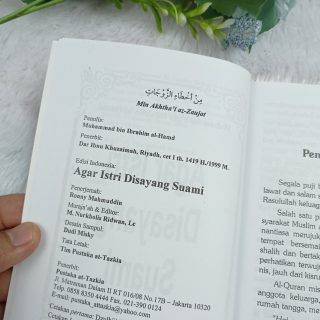 من أخطاء الزوجات
Min Akhtha'i az-Zaujat
Penulis:
Muhammad bin Ibrahim al-Hamd
Penerbit:
Dar Ibnu Khuzaimah, Riyadh, cet I th. 1419 H./1999 M.
Edisi Indonesia:
Agar Istri Disayang Suami
Penerjemah:
Ronny Mahmuddin
Muraja'ah & Editor:
M. Nurkholis Ridwan, Lc
Desain Sampul:
Dudi Misky
Tata Letak:
Tim Pustaka at-Tazkia
Penerbit:
Pustaka at-Tazkia
Jl. Matraman Dalam II RT 016/08 No.17B – Jakarta 10320
Telp. 0858 8350 4444 Fax. 021-390 0124
E-mail: pustaka_attazkia@yahoo.com
Cetakan Pertama:
Pen
Segala puji b
lawat dan salam se
Rasulullah keluarg
Salah satu p
syarakat Muslim a
nantiasa merujuk
tempat bersemai
shalih, dan tempa
kan terwujud perna
nis, jauh dari kisru
Al-Quran mis
yang kuat, keluarg
rumah tangga, mer